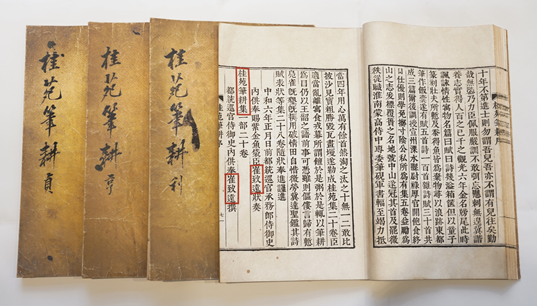 十年不第進士則勿謂吾兒吾亦不謂有兒往矣勤
哉無隳乃力臣佩服嚴訓不敢弭忘懸刺無遑冀諧
養志實得人百之己千之觀光六年金名榜尾此時
諷詠情性寓物名篇曰賦曰詩幾溢箱篋但以童子
篆刻壯夫所慙及忝得魚皆爲棄物尋以浪跡東都
筆作飯囊遂有賦五首詩一百首雜詩賦三十首共
成三篇爾後調授宣州溧水縣尉祿厚官閒飽食終
日仕優則學免擲寸陰公私所爲有集五卷益勵爲
山之志爰標覆簣之名地號中山遂冠其首及罷微
秩從職淮南蒙高侍中專委筆硯軍書輻至竭力抵
當四年用心萬有餘首然淘之汰之十無一二敢比
披沙見寶粗勝毀瓦畫墁遂勒成桂苑集二十卷臣
適當亂離寓食戎幕所謂饘於是粥於是輒以筆耕
爲目仍以王韶之語前事可憑雖則傴僂言歸有慙
鳧雀旣墾旣耨用破情田自惜微勞冀達聖鑑其詩
賦表狀等集二十八卷隨狀奉進謹進
中和六年正月日前都統巡官承務郎侍御史
內供奉賜紫金魚袋臣崔致遠狀奏
桂苑筆耕集一部二十卷
都統巡官侍御史內供奉崔致遠撰
桂苑筆耕 利
桂苑筆耕 亨
桂苑筆耕 貞